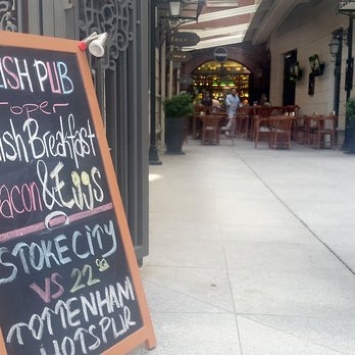 ISH PUB
Toper
ish Breakfast
acon & Eggs
STOKE CITY
VS 22
TOTTENHAM
HOTSPUR